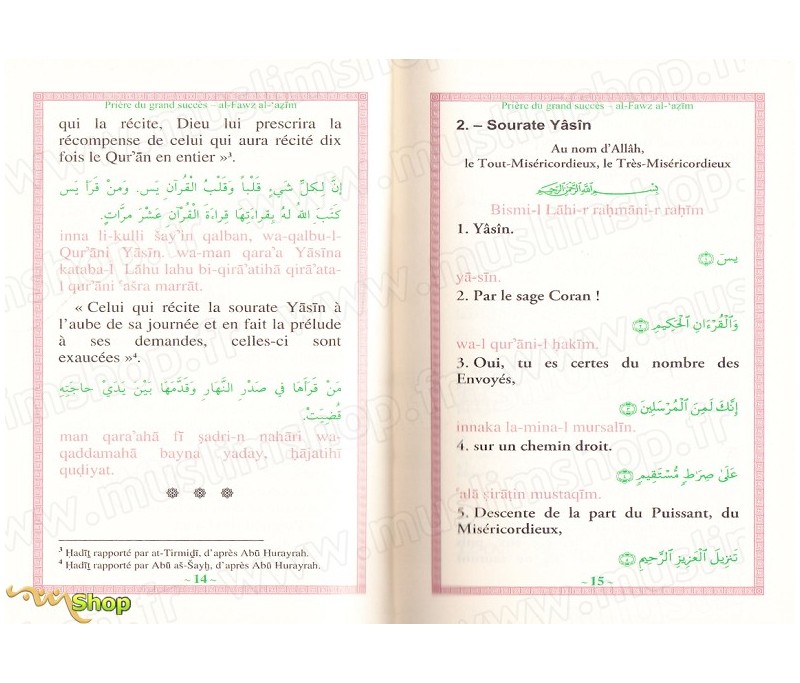 Prière du grand succès – al-Fawz al-‘aẓîm
qui la récite, Dieu lui prescrira la
récompense de celui qui aura récité dix
fois le Qur’ān en entier »³.
إِنَّ لِكُلِّ شَيْءٍ قَلْباً وَقَلْبُ الْقُرْآنِ يَس. وَمَنْ قَرَأَ يَس
كَتَبَ اللهُ لَهُ بِقِرَاءَتِهَا قِرَاءَةَ الْقُرْآنِ عَشْرَ مَرَّاتٍ.
inna li-kulli šay’in qalban, wa-qalbu-l-
Qur’āni Yāsīn. wa-man qara’a Yāsīna
kataba-l Lāhu lahu bi-qirā’atihā qirā’ata-
l qur’āni ‘ašra marrāt.
« Celui qui récite la sourate Yāsīn à
l’aube de sa journée et en fait la prélude
à ses demandes, celles-ci sont
exaucées »⁴.
مَنْ قَرَأَهَا فِي صَدْرِ النَّهَارِ وَقَدَّمَهَا بَيْنَ يَدَيْ حَاجَتِهِ
قُضِيَتْ.
man qara’ahā fī ṣadri-n nahāri wa-
qaddamahā bayna yaday, ḥājatihī
quḍiyat.
³ Ḥadīṯ rapporté par at-Tirmiḏī, d’après Abū Hurayrah.
⁴ Ḥadīṯ rapporté par Abū aš-Šayḫ, d’après Abū Hurayrah.
~ 14 ~
Prière du grand succès – al-Fawz al-‘aẓîm
2. – Sourate Yâsîn
Au nom d’Allâh,
le Tout-Miséricordieux, le Très-Miséricordieux
بِسْمِ اللهِ الرَّحْمَنِ الرَّحِيمِ
Bismi-l Lāhi-r raḥmāni-r raḥīm
1. Yâsîn.
يسٓ ﴿١﴾
yā-sīn.
2. Par le sage Coran !
وَٱلْقُرْءَانِ ٱلْحَكِيمِ ﴿٢﴾
wa-l qur’āni-l ḥakīm.
3. Oui, tu es certes du nombre des
Envoyés,
إِنَّكَ لَمِنَ ٱلْمُرْسَلِينَ ﴿٣﴾
innaka la-mina-l mursalīn.
4. sur un chemin droit.
عَلَىٰ صِرَٰطٍ مُّسْتَقِيمٍ ﴿٤﴾
‘alā ṣirāṭin mustaqīm.
5. Descente de la part du Puissant, du
Miséricordieux,
تَنزِيلَ ٱلْعَزِيزِ ٱلرَّحِيمِ ﴿٥﴾
~ 15 ~
Shop
www.muslimshop.fr